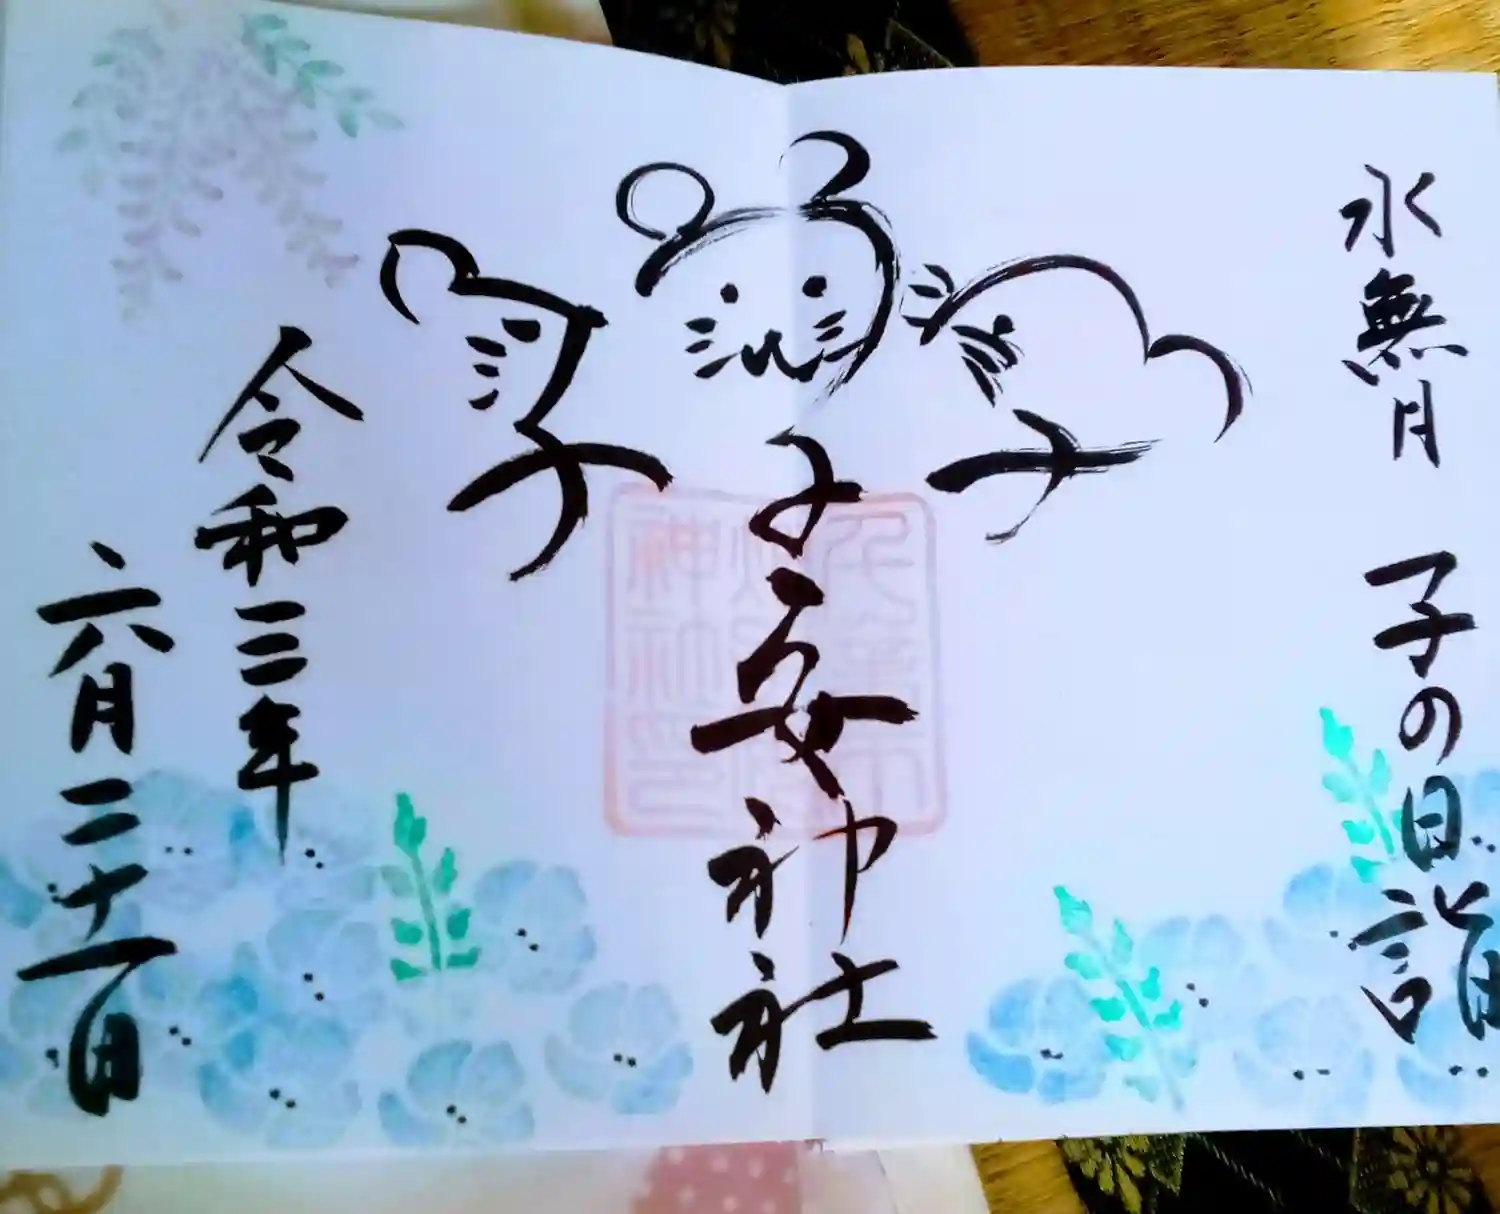 水無月 子の日詣
子
子安神社
子
令和三年
六月二十一日
千葉市
神社印